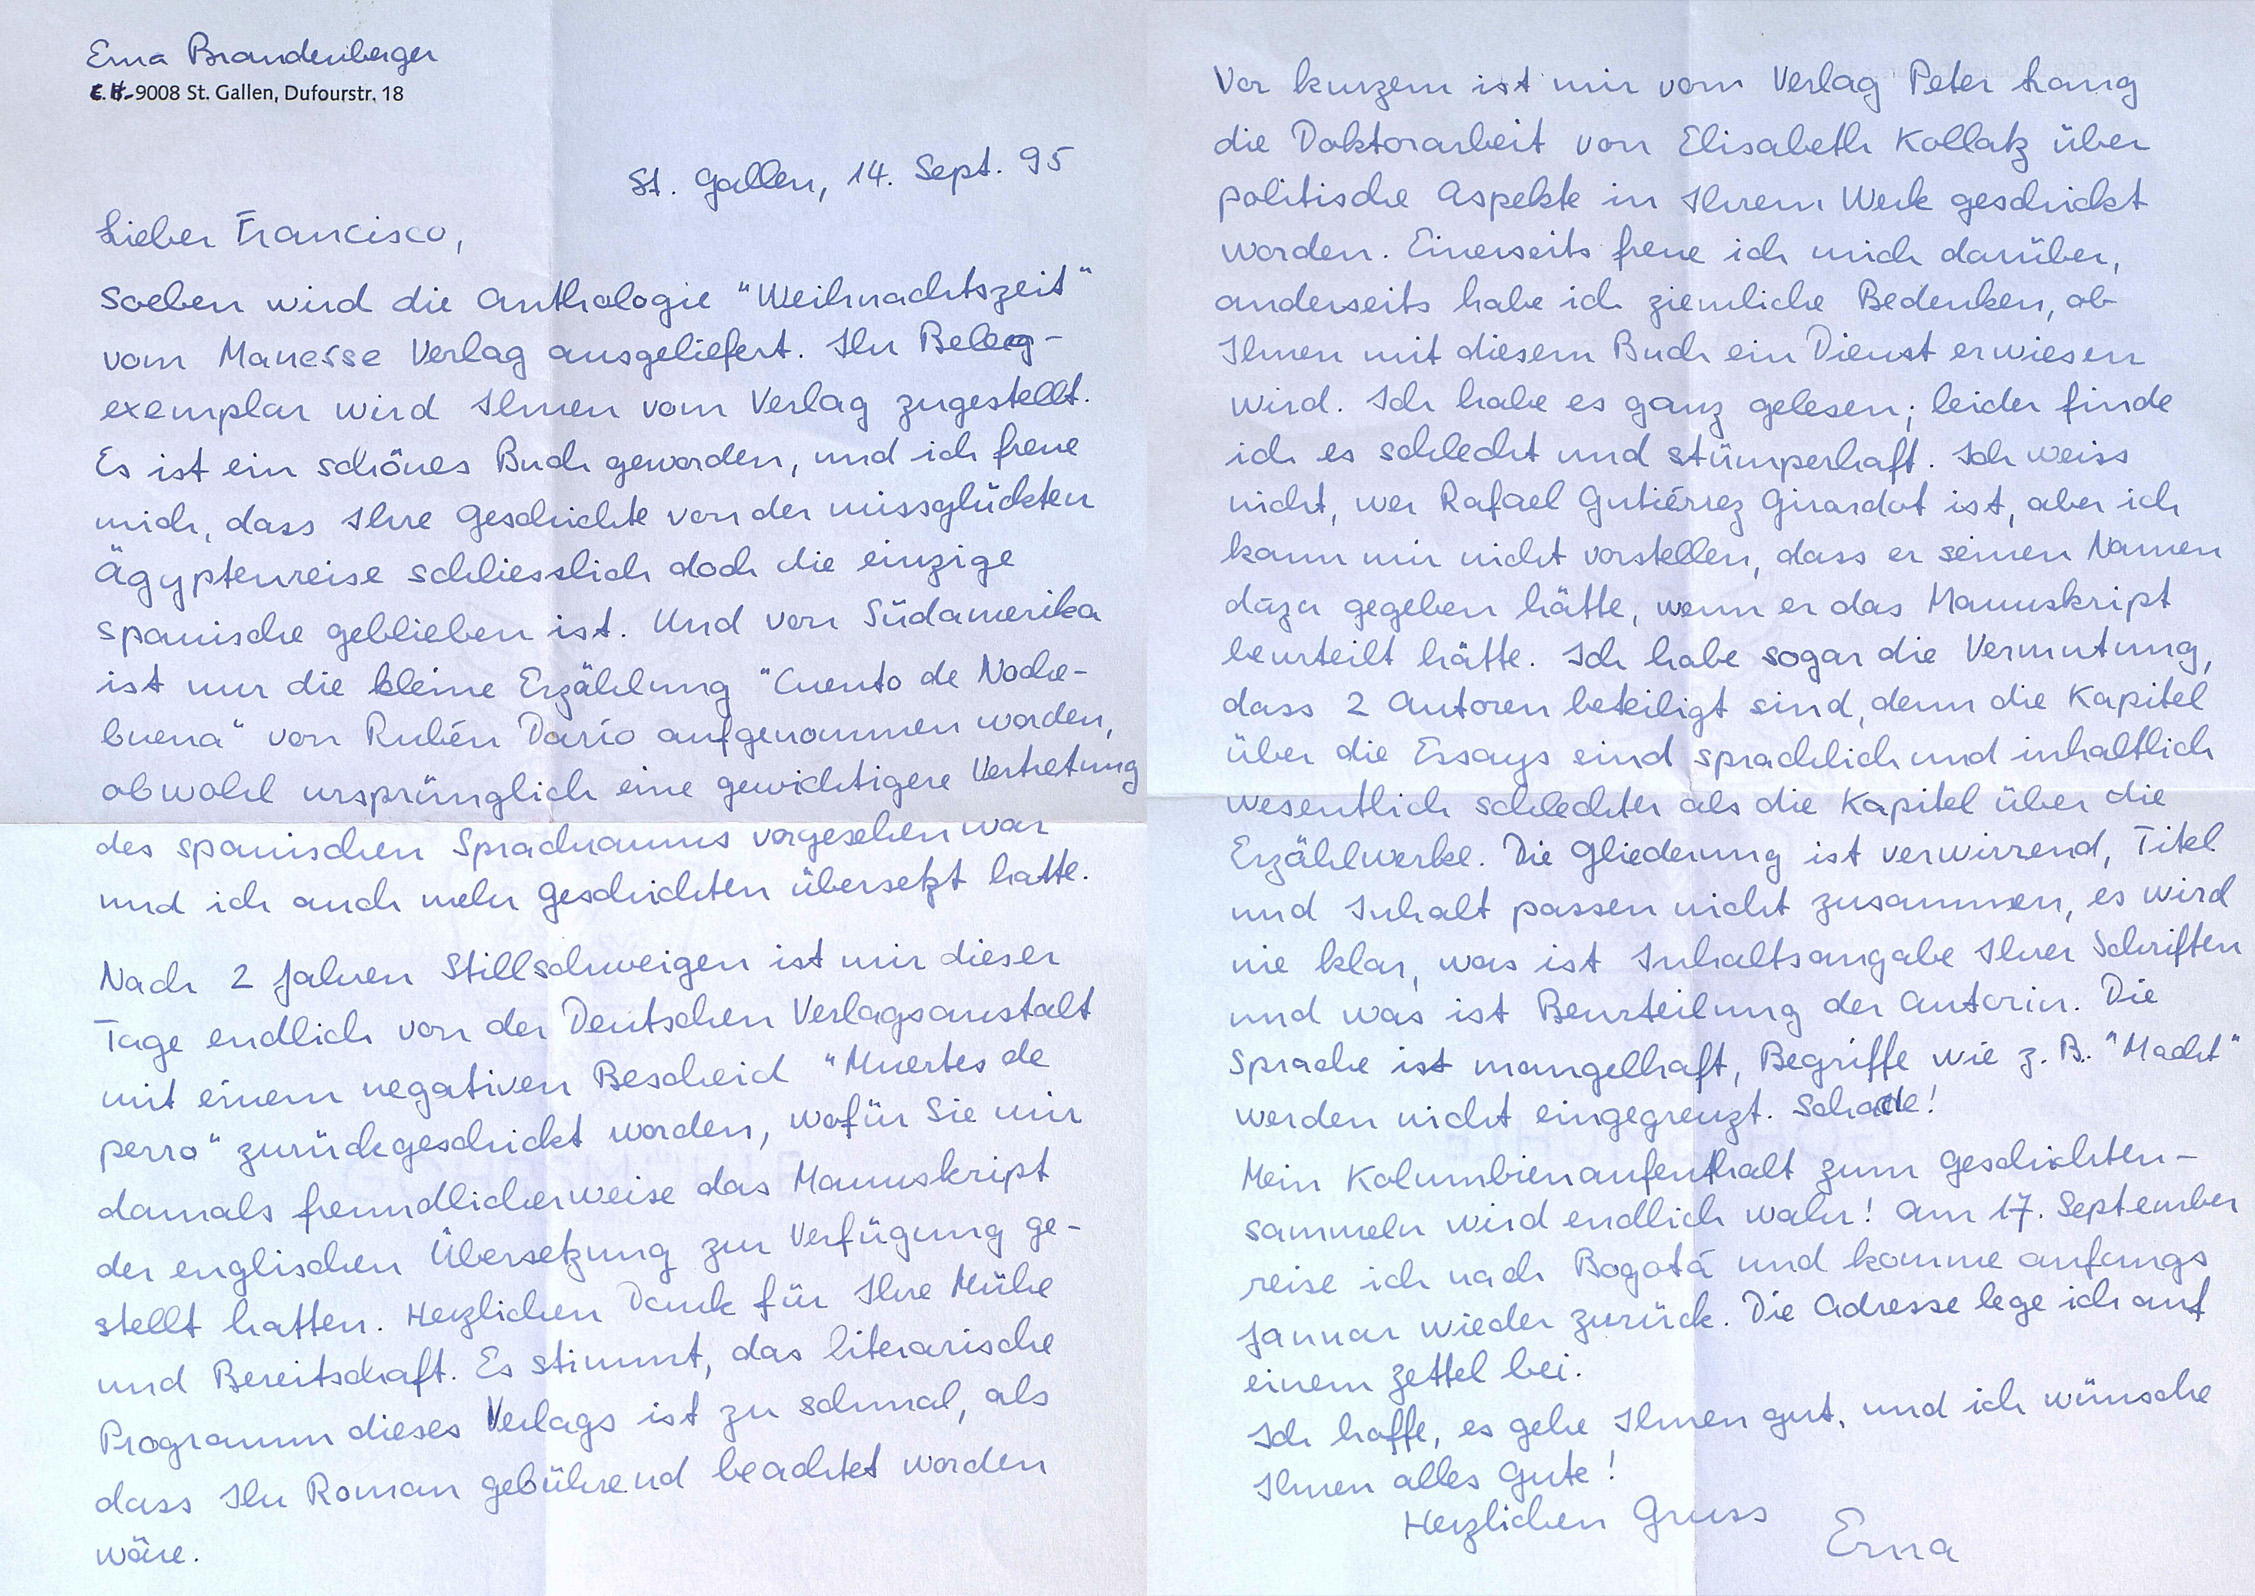 Erna Brandenberger
C.H.-9008 St. Gallen, Dufourstr. 18
St. Gallen, 14. Sept. 95
Lieber Francisco,
Soeben wird die Anthologie "Weihnachtszeit"
vom Manesse Verlag ausgeliefert. Ihr Beleg-
exemplar wird Ihnen vom Verlag zugestellt.
Es ist ein schönes Buch geworden, und ich freue
mich, dass Ihre Geschichte von der missglückten
Ägyptenreise schliesslich doch die einzige
spanische geblieben ist. Und von Südamerika
ist nur die kleine Erzählung "Cuento de Noche-
buena" von Rubén Darío aufgenommen worden,
obwohl ursprünglich eine gewichtigere Vertretung
des spanischen Sprachraums vorgesehen war
und ich auch mehr Geschichten übersetzt hatte.
Nach 2 Jahren Stillschweigen ist mir dieser
Tage endlich von der Deutschen Verlagsanstalt
mit einem negativen Bescheid "Muertes de
perro" zurückgeschickt worden, wofür Sie mir
damals freundlicherweise das Manuskript
der englischen Übersetzung zur Verfügung ge-
stellt hatten. Herzlichen Dank für Ihre Mühe
und Bereitschaft. Es stimmt, das literarische
Programm dieses Verlags ist zu schmal, als
dass Ihr Roman gebührend beachtet worden
wäre.
Vor kurzem ist mir vom Verlag Peter Lang
die Doktorarbeit von Elisabeth Kollatz über
politische Aspekte in Ihrem Werk geschickt
worden. Einerseits freue ich mich darüber,
anderseits habe ich ziemliche Bedenken, ob
Ihnen mit diesem Buch ein Dienst erwiesen
wird. Ich habe es ganz gelesen; leider finde
ich es schlecht und stümperhaft. Ich weiss
nicht, wer Rafael Gutiérrez Girardot ist, aber ich
kann mir nicht vorstellen, dass er seinen Namen
dazu gegeben hätte, wenn er das Manuskript
beurteilt hätte. Ich habe sogar die Vermutung,
dass 2 Autoren beteiligt sind, denn die Kapitel
über die Essays sind sprachlich und inhaltlich
wesentlich schlechter als die Kapitel über die
Erzählwerke. Die Gliederung ist verwirrend, Titel
und Inhalt passen nicht zusammen, es wird
nie klar, was ist Inhaltsangabe Ihrer Schriften
und was ist Beurteilung der Autorin. Die
Sprache ist mangelhaft, Begriffe wie z.B. "Macht"
werden nicht eingegrenzt. Schade!
Mein Kolumbienaufenthalt zum Geschichten-
sammeln wird endlich wahr! Am 17. September
reise ich nach Bogotá und komme anfangs
Januar wieder zurück. Die Adresse lege ich auf
einem Zettel bei.
Ich hoffe, es gehe Ihnen gut, und ich wünsche
Ihnen alles Gute!
Herzlichen Gruss
Erna